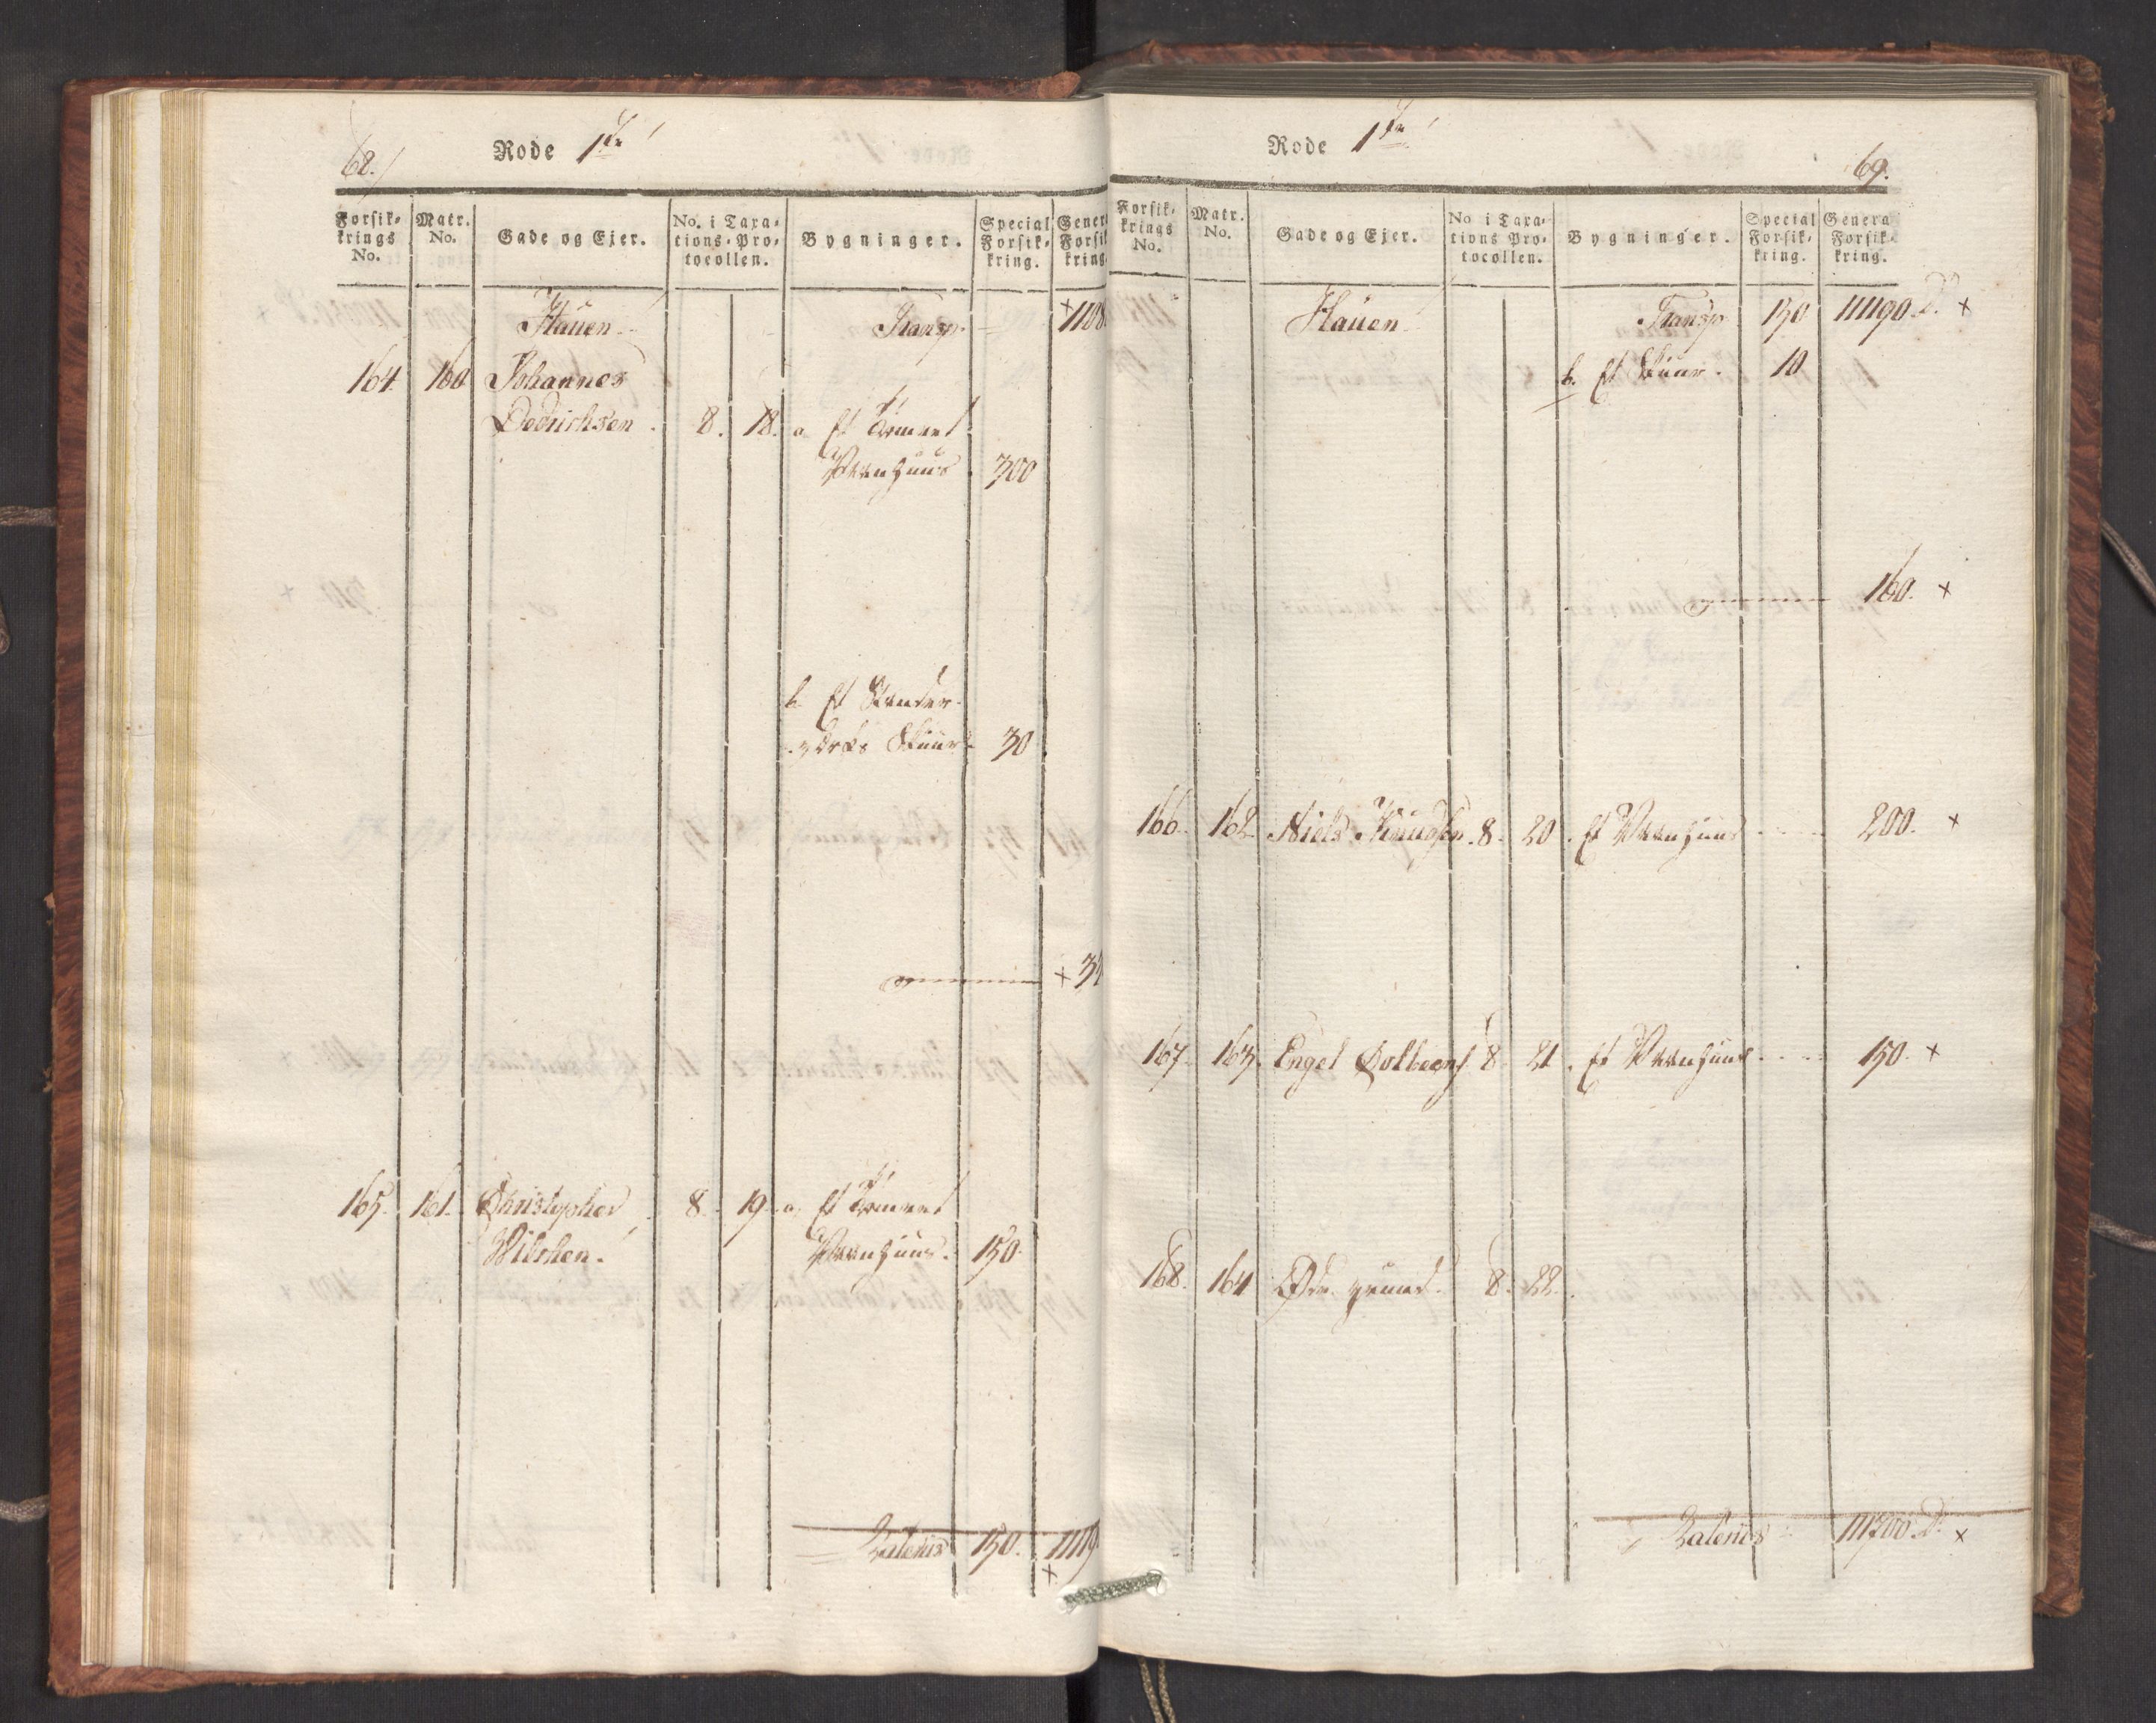 68.
Rode 1ste
Forsik-
krings
No.
Matr.
No.
Gade og Ejer.
No. i Taxa-
tions-Pro-
tocollen.
Bygninger.
Special
Forsik-
kring.
Gener
Forsik
kring
Hauen
Transp.
+1108
164 160 Johannes
Dedrichsen 8. 18. a. Et Tömret
Vaanhuus 300
b. Et Stander-
værks Skuur 30
+ 3
165. 161. Christopher 8. 19. a. Et Tömret
Wilchen. Vaanhuus. 150.
Lateris 150. 1119
+
Rode 1ste
69.
Forsik-
krings
No.
Matr.
No.
Gade og Ejer.
No i Taxa-
tions Pro-
tocollen.
Bygninger.
Special
Forsik-
kring.
Genera
Forsik-
kring.
Hauen Transp. 150 111190. D. +
b. Et Skuur. 10
160. +
166. 162. Niels Knudsen. 8. 20. Et Vaanhuus 200. +
167. 163. Engel 8. 21. Et Vaanhuus 150. +
168. 164 Øde grund. 8. 22.
Lateris 111700. D. +